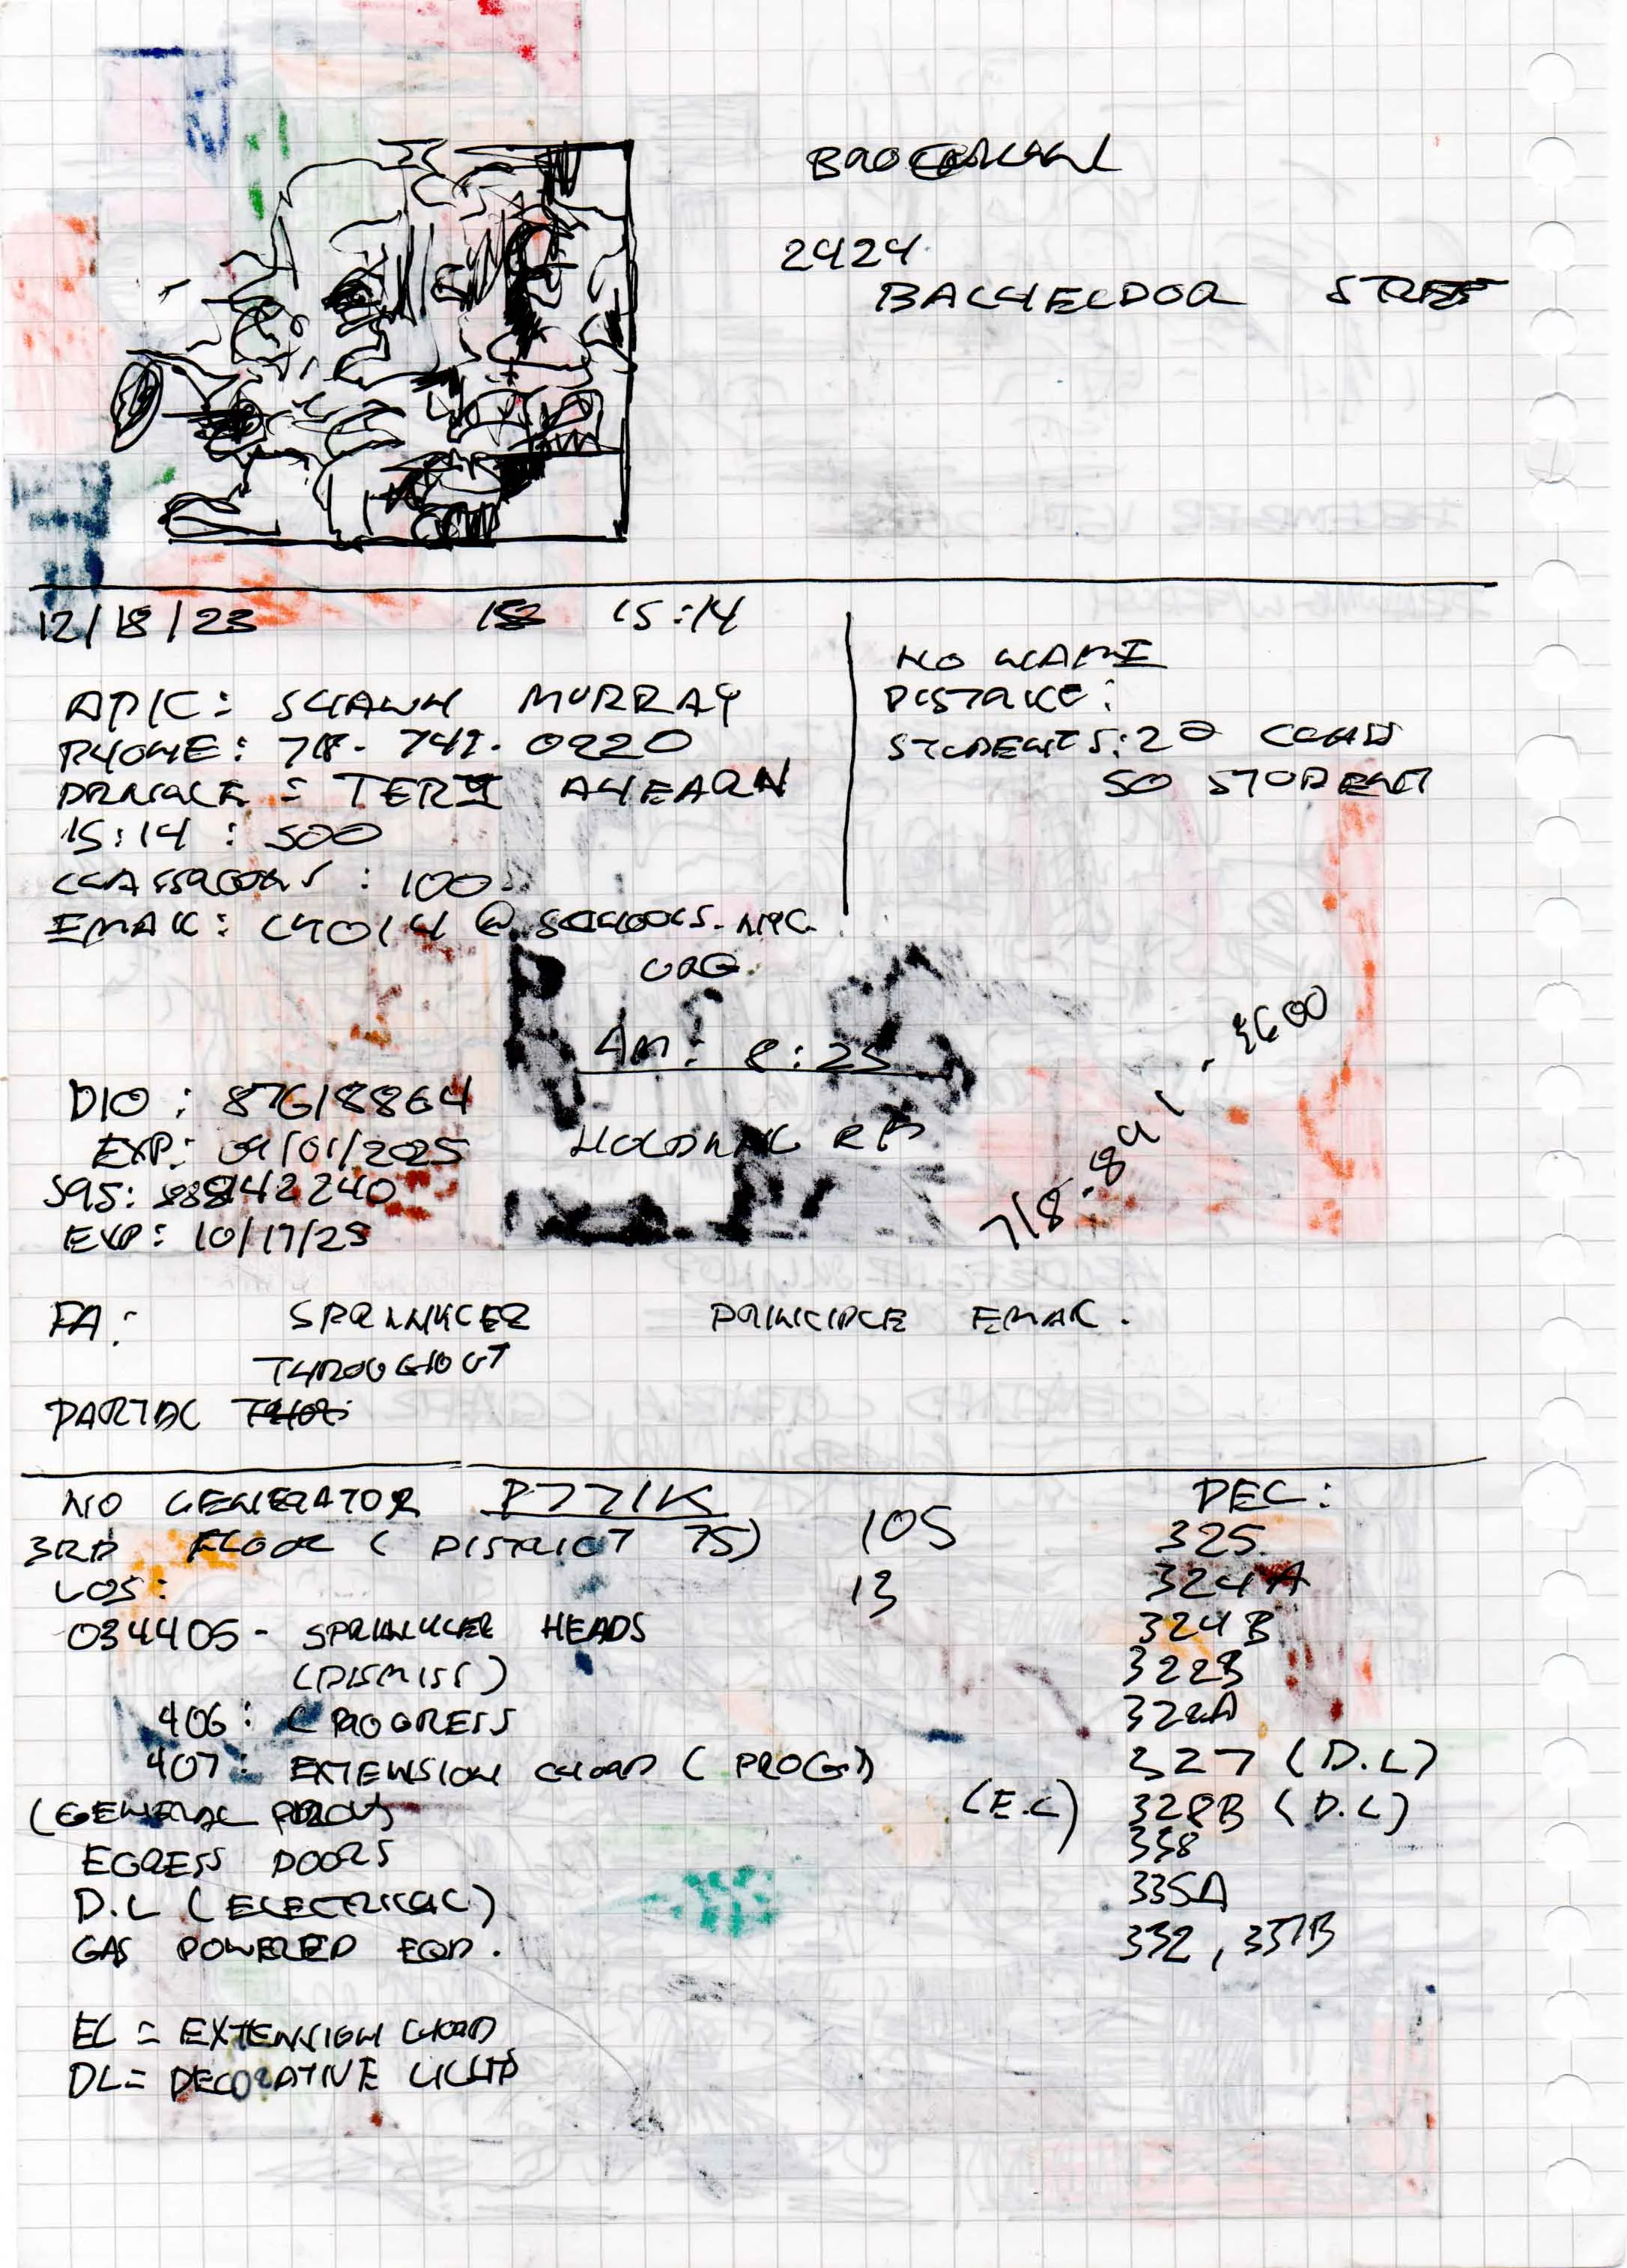 2424
BACHELDOR STREE
12/18/23 15:14
NO NAME
DISTRICE:
STUDENTS: 2
50 STUDENT
AP/C: SHAWN MURRAY
PHONE: 718- 741- 0220
: TERI AHEARN
15:14 : 500
CLASSROOMS : 100
EMAIL: @ SCHOOLS. NYC.
ORG.
AM: 8:25
718-891-3600
D10: 87618864
EXP: 09/01/2025
HOLDING RM
S95: 88842240
EXP: 10/17/25
FA: SPRINKLER PRINCIPLE EMAIL.
THROUGHOUT
PARTIAL
NO GENERATOR P771K DEC:
3RD FLOOR ( DISTRICT 75) 105 325.
LOS: 13 324A
034405- SPRINKLER HEADS 324B
(DISMISS) 322B
406: (PROGRESS 322A
407: EXTENSION CHORD ( PROG.) 327 (D.L)
(GENERAL (E.C) 328B (D.L)
338
EGRESS DOORS
335A
D.L (ELECTRICAL)
332, 337B
GAS POWERED EQP.
EC = EXTENSION CHORD
DL= DECORATIVE LIGHTS